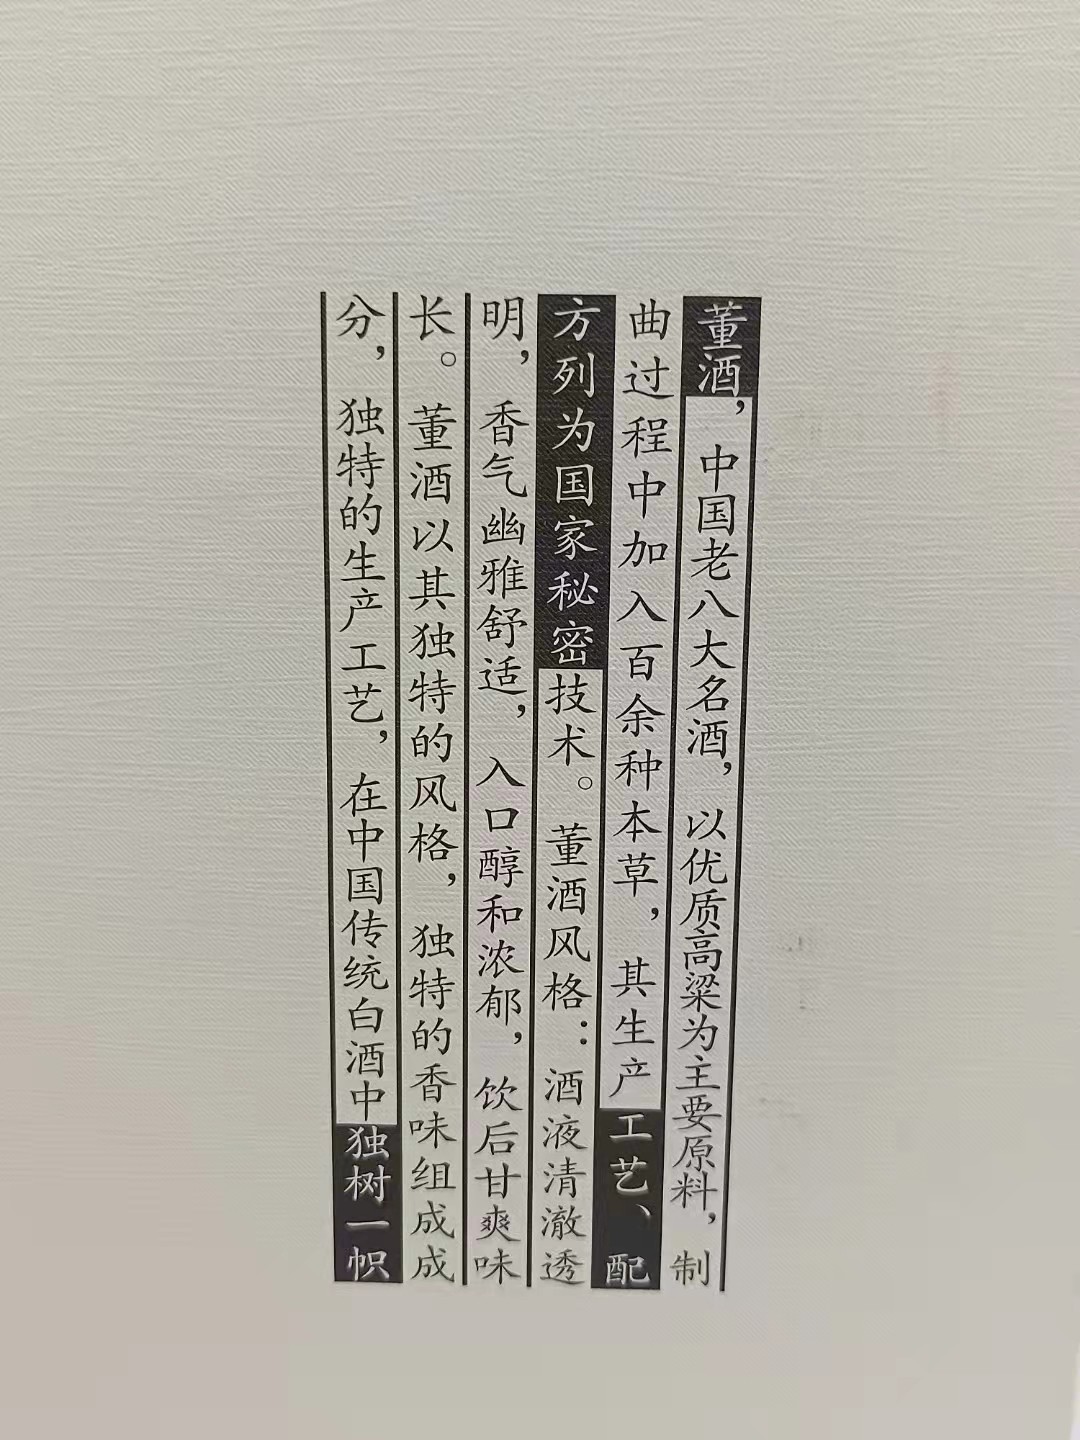 董酒，中国老八大名酒，以优质高粱为主要原料，制
曲过程中加入百余种本草，其生产工艺、配
方列为国家秘密技术。董酒风格：酒液清澈透
明，香气幽雅舒适，入口醇和浓郁，饮后甘爽味
长。董酒以其独特的风格，独特的香味组成成
分，独特的生产工艺，在中国传统白酒中独树一帜